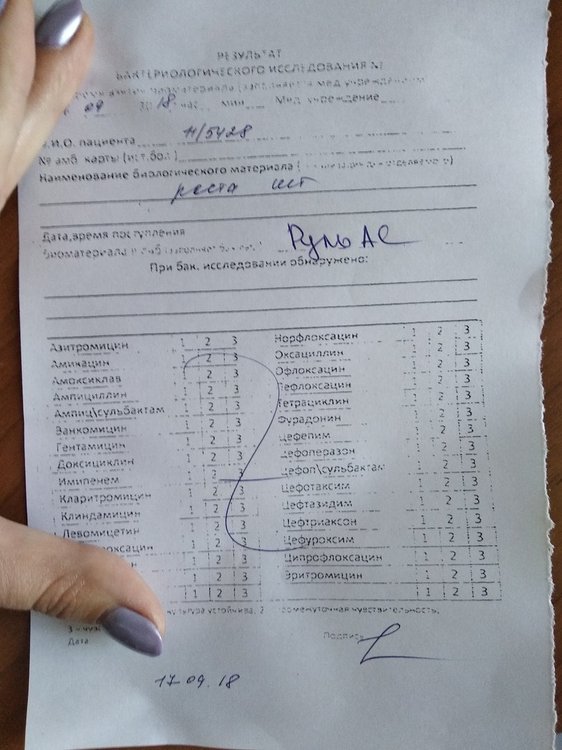 РЕЗУЛЬТАТ
БАКТЕРИОЛОГИЧЕСКОГО ИССЛЕДОВАНИЯ №
мед учреждением
09 18 час мин Мед учреждение
Ф.И.О. пациента Н/5428
№ амб. карты (ист.бол.)
Наименование биологического материала (
роста нет
Дата,время поступления
биоматериала
При бак. исследовании обнаружено:
Азитромицин 1 2 3
Амикацин 2 3
Амоксиклав 1 2 3
Ампициллин 1 2 3
Ампиц\сульбактам 1 2 3
Ванкомицин 1 2 3
Гентамицин 1 2 3
Доксициклин 1 2 3
Имипенем 1 2 3
Кларитромицин 1 2 3
Клиндамицин 1 2 3
Левомицетин 1 2 3
оксацин 1 2 3
н 1 2 3
1 2 3
Норфлоксацин 1 2 3
Оксациллин 1 2 3
Офлоксацин 1 2 3
Пефлоксацин 1 2 3
Тетрациклин 1 2 3
Фурадонин 1 2 3
Цефепим 1 2 3
Цефоперазон 1 2 3
Цефоп\сульбактам 1 2 3
Цефотаксим 1 2 3
Цефтазидим 1 2 3
Цефтриаксон 1 2 3
Цефуроксим 1 2 3
Ципрофлоксацин 1 2 3
Эритромицин 1 2 3
1 2 3
культура устойчива, 2 промежуточная чувствительность,
3 – чув
Дата Подпись
17.09.18